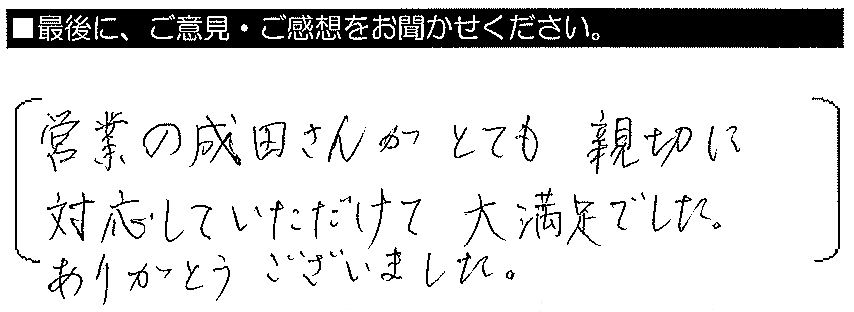 ■最後に、ご意見・ご感想をお聞かせください。
営業の成田さんがとても 親切に
対応していただけて 大満足でした。
ありがとう ございました。